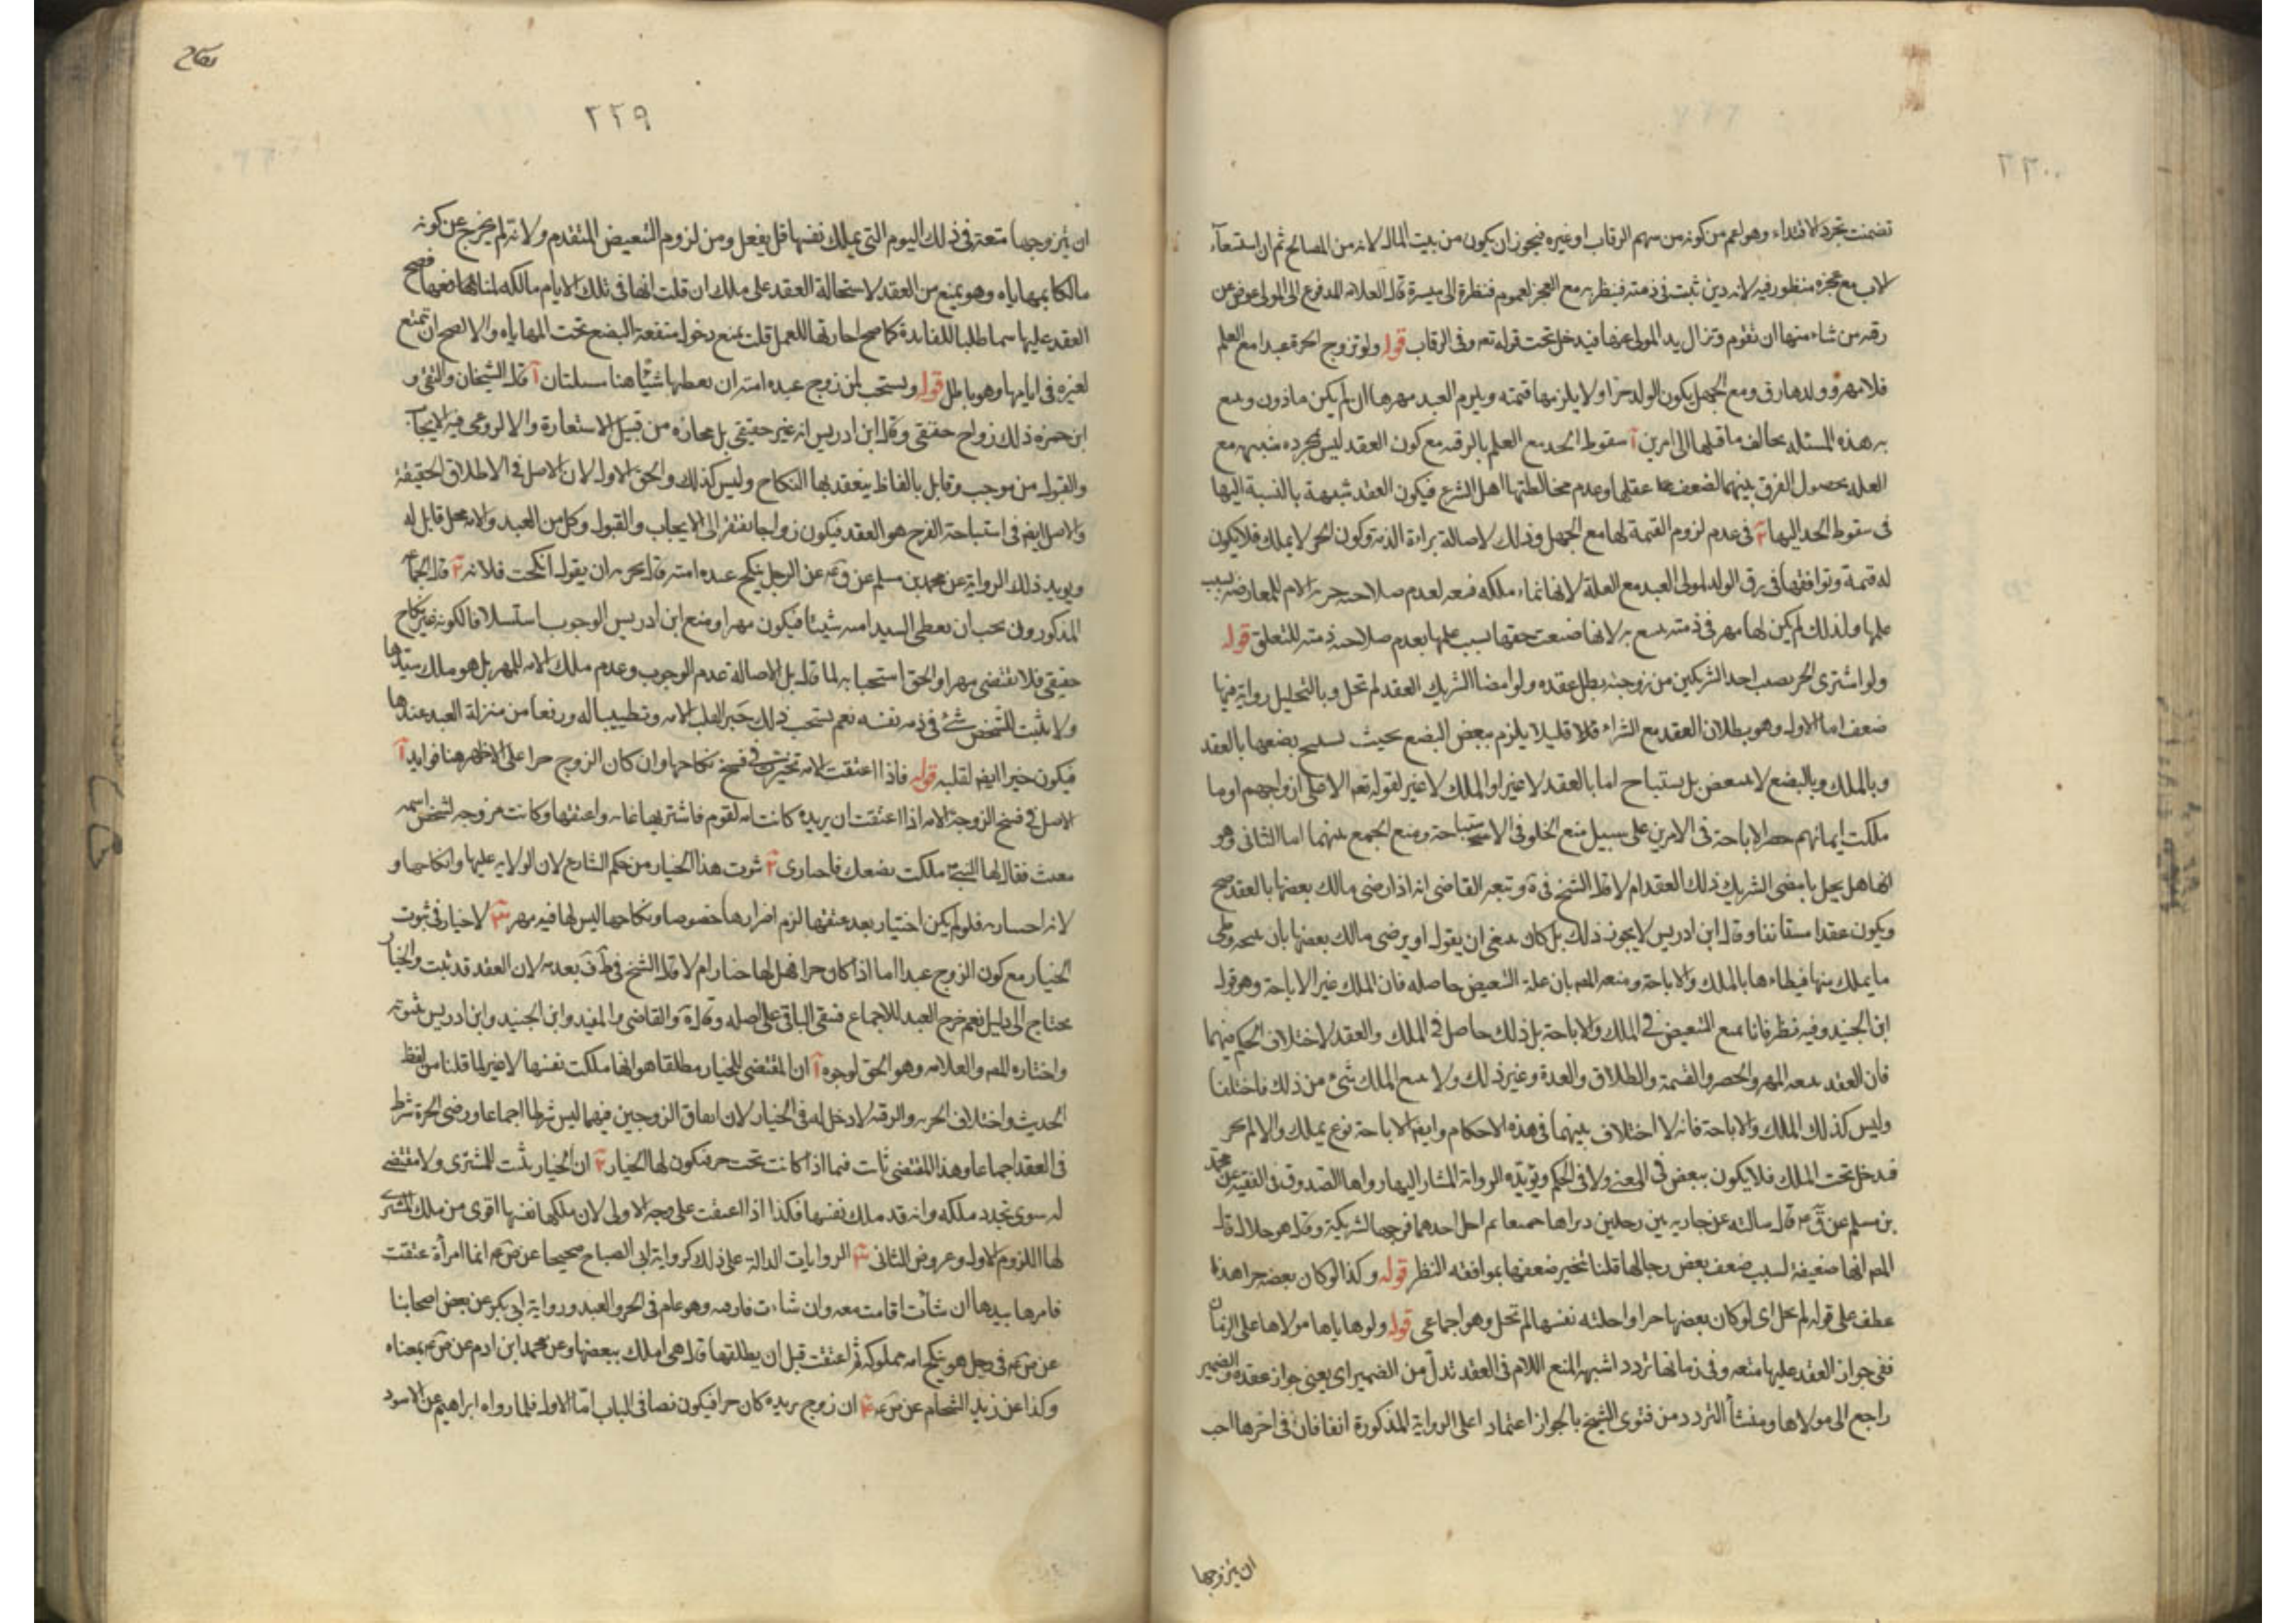 تضمنت تجرد الافتداء وهو اعم من كونه من سهم الرقاب او غيره فيجوز ان يكون من بيت المال لانه من المصالح ثم ان استسعاء
الاب مع عجزه منظور فيه لانه دين ثبت في ذمته فينظر به مع العجز لعموم فنظرة الى ميسرة قال العلامه المدفوع الى المولى عوض عن
رقه من شاء منها ان تقوم وتزال يد المولى عنها فيدخل تحت قوله تعه وفي الرقاب قوله ولو تزوج الحرة عبدا مع العلم
فلا مهر وولدها رق ومع الجهل يكون الولد حرا ولا يلزمها قيمته ويلزم العبد مهرها ان لم يكن ماذون ويتبع
به هذه المسئله يخالف ما قبلها الى امرين آ سقوط الحد مع العلم بالرقيه مع كون العقد ليس بمجرده شبهه مع
العلم بحصول الفرق بينهما لضعف عقلها وعدم مخالطتها اهل الشرع فيكون العقد شبهة بالنسبة اليها
في سقوط الحد اليها ٢ في عدم لزوم القيمة لها مع الجهل وذلك لاصالة براءة الذمة وكون الحر لا يملك فلا يكون
له قيمة وتوافقها في رق الولد لمولى العبد مع العلم لانها نماء ملكه فيتبعه لعدم صلاحيه حرية الام للمعارضه بسبب
علمها ولذلك لم يكن لها مهر في ذمته يتبع به لانها ضيعت حقها بسبب علمها بعدم صلاحيه ذمته للتعلق قوله
ولو اشترى الحر نصيب احد الشريكين من زوجته بطل عقده ولو امضا الشريك العقد لم تحل وبالتحليل رواية فيها
ضعف اما الاول وهو بطلان العقد مع الشراء فلا قليلا يلزم ببعض البضع بحيث يستبيح بضعها بالعقد
وبالملك وبالبضع لا يتبعض بل يستباح اما بالعقد لا غير او الملك لا غير لقوله تعه الا على ازواجهم او ما
ملكت ايمانهم حصر الاباحة في الامرين على سبيل منع الخلو في الاستباحة ومنع الجمع بينهما اما الثاني وهو
انها هل يحل بامضى الشريك ذلك العقد ام لا قال الشيخ في ية وتبعه القاضي انه اذا رضى مالك بعضها بالعقد صح
ويكون عقدا مستانفا وقال ابن ادريس لا يجوز ذلك بل كان ينبغي ان يقول او يرضى مالك بعضها بان يبيحه وطى
ما يملك منها فيطاءها بالملك والاباحة ومنعه المص بان علة التبعيض حاصله فان الملك غير الاباحة وهو قول
ابن الجنيد وفيه نظر فانا نمنع التبعيض في الملك والاباحة بل ذلك حاصل في الملك والعقد لاختلاف الحكم فيهما
فان العقد يتبعه المهر والحصر والقسمة والطلاق والعدة وغير ذلك ولا يتبع الملك شئ من ذلك فاختلفا
وليس كذلك الملك والاباحة فانه لا اختلاف بينهما في هذه الاحكام وايضا الاباحة نوع يملك والا لم يجز
فدخل تحت الملك فلا يكون ببعض في المعنى ولا في الحكم ويؤيده الرواية المشار اليها رواها الصدوق في الفقيه عن محمد
بن مسلم عن ق مه قال سالته عن جاريه بين رجلين دبراها جميعا ثم احل احدهما فرجها لشريكه وقال هو حلال له قال
المص انها ضعيفة لسبب ضعف بعض رجالها قلنا تنجبر ضعفها بموافقه النظر قوله وكذا لو كان بعضها حرا هذا
عطف على قوله لم تحل اى لو كان بعضها حرا واحلته نفسها لم تحل وهو اجماعى قوله ولو هاياها مولاها على الزمان
ففي جواز العقد عليها متعه وفي زمانها تردد اشبهه المنع اللام في العقد تدل من الضمير اى يعنى جواز عقده والضمير
راجع الى مولاها ومنشأ التردد من فتوى الشيخ بالجواز اعتماد اعلى الرواية المذكورة انفا فان في اخرها احب
ان يتزوجها
نكاح
٢٢٩
ان يتزوجها متعة في ذلك اليوم التي يملك نفسها قل يفعل ومن لزوم التبعيض المتقدم ولانه لم يخرج عن كونه
مالكا بمهاياه وهو يمنع من العقد لاستحالة العقد على ملك ان قلت انها في تلك الايام مالكه لمنافعها فصح
العقد عليها سما طلبا للفايدة كما صح اجارتها للعمل قلت يمنع دخول منفعة البضع تحت المهاياه والا لصح ان تمتع
لغيره في ايامها وهو باطل قوله ويستحب لمن زوج عبده امته ان يعطيها شيئا هنا مسئلتان آ قال الشيخان والتقى و
ابن حمزه ذلك زواج حقيقي وقال ابن ادريس انه غير حقيقي بل مجازه من قبيل الاستعارة والا لروعى فيه الايجاب
والقبول من موجب وقابل بالفاظ ينعقد بها النكاح وليس كذلك والحق الاول لان الاصل في الاطلاق الحقيقة
والاصل ايضا في استباحة الفرج هو العقد فيكون زواجا يفتقر الى الايجاب والقبول وكل من العبد والامه محل قابل له
ويويد ذلك الرواية عن محمد بن مسلم عن ق مه عن الرجل ينكح عبده امته قال يجزيه ان يقول انكحتك فلانه ٢ قال الجماعه
المذكورون يجب ان يعطى السيد امته شيئا فيكون مهرا ومنع ابن ادريس الوجوب استسلافا لكونه غير نكاح
حقيقي فلا يقتضى مهرا والحق استحبابه لما قال بل لاصالة عدم الوجوب وعدم ملك الامه للمهر بل هو ملك سيدها
ولا يثبت للشخص شئ في ذمه نفسه نعم يستحب ذلك جبرا لقلب الامه وتطييبا له ورفعا من منزلة العبد عندها
فيكون جبرا ايضا لقلبه قوله فاذا اعتقت الامه تخيرت في فسخ نكاحها وان كان الزوج حرا على الاظهر هنا فوايد آ
الاصل في فسخ الزوجة الامه اذا اعتقت ان بريده كانت امه لقوم فاشتريها عايشه واعتقها وكانت مزوجه لشخص اسمه
مغيث فقال لها النبي ملكت بضعك فاختارى ٢ ثبوت هذا الخيار من حكم الشارع لان الولايه عليها وانكاحها و
لانه اجباريه فلو لم يكن اختيار بعد عتقها لزم اضرارها خصوصا ونكاحها ليس لها فيه مهر ٣ لا خيار في ثبوت
الخيار مع كون الزوج عبدا اما اذا كان حرا فهل لها خيار ام لا قال الشيخ في ط ف بعدمه لان العقد قد ثبت والخيار
يحتاج الى دليل نعم خرج العبد للاجماع فبقى الباقي على اصله وقال ية والقاضي والمفيد وابن الجنيد وابن ادريس ثبوته
واختاره المص والعلامه وهو الحق لوجوه آ ان المقتضى للخيار مطلقا هو انها ملكت نفسها لا غير لما قلنا من لفظ
الحديث واختلاف الحريه والرقيه لا دخل له في الخيار لان اتفاق الزوجين فيهما ليس شرطا اجماعا ورضى الحرة شرط
في العقد اجماعا وهذا المقتضى ثابت فيما اذا كانت تحت حر فيكون لها الخيار ٢ ان الخيار يثبت للمشترى ولا مقتضى
له سوى تجدد ملكه وانه قد ملك نفسها فكذا اذا اعتقت على وجه الاولى لان ملكها نفسها اقوى من ملك المشترى
لها اللزوم الاول وعروض الثاني ٣ الروايات الدالة على ذلك كرواية ابي الصباح صحيحا عن ص مه ايما امرأة عتقت
فامرها بيدها ان شأت اقامت معه وان شاءت فارقته وهو عام في الحر والعبد ورواية ابي بكر عن بعض اصحابنا
عن ص مه في رجل حر ينكح امه مملوكه ثم اعتقت قبل ان يطلقها قال هي املك ببضعها وعن محمد ابن ادم عن ص مه بمعناه
وكذا عن زيد الشحام عن ص مه ٤ ان زوج بريده كان حرا فيكون نصا في الباب اما الاول فلما رواه ابراهيم عن الاسود